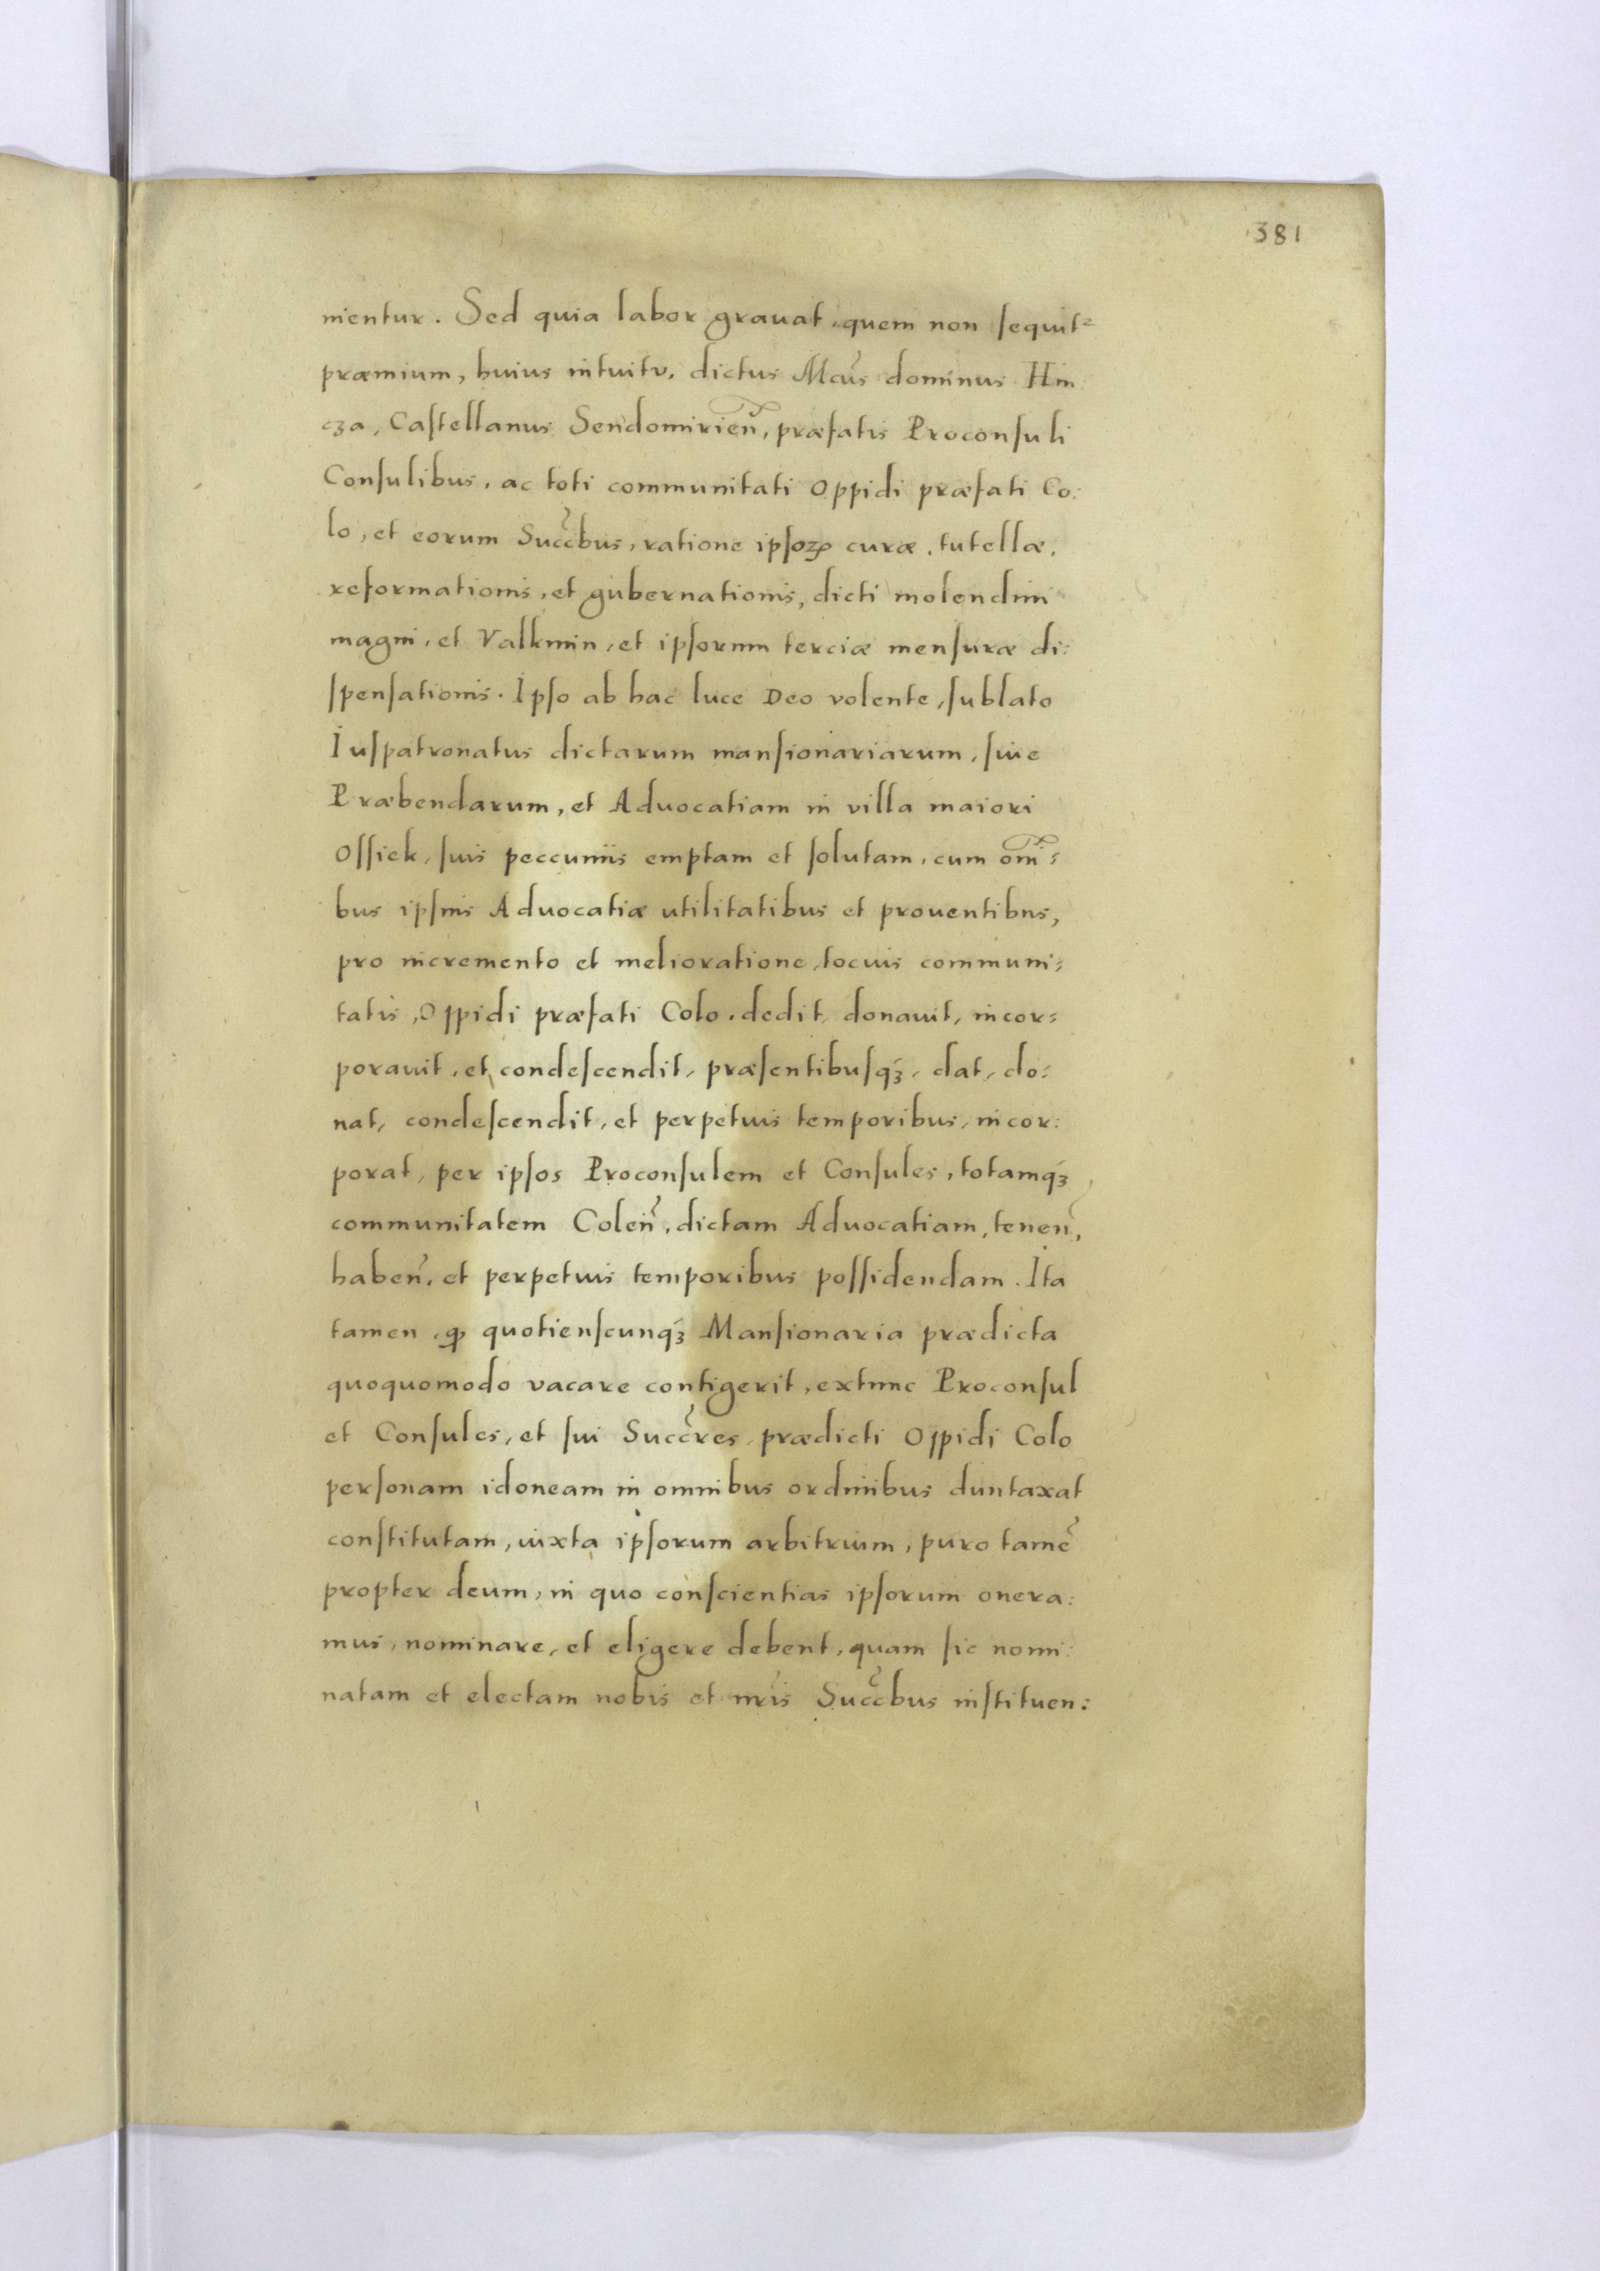 381
nientur. Sed quia labor grauat, quem non ſequit᷑
præmium, huius intuitu, dictus Mcus̃ dominus Hin:
cza, Caſtellanus Sendomirien̄, præfatis Proconſuli
Conſulibus, ac toti communitati Oppidi præfati Co:
lo, et eorum Succ̃bus, ratione ipſoꝝ curæ, tutellæ,
reformationis, et gubernationis, dicti molendini
magni, et Valkmin, et ipſorum terciæ menſuræ di:
ſpenſationis. Ipſo ab hac luce Deo volente, ſublato
Iuſpatronatus dictarum manſionariarum, ſiue
Præbendarum, et Aduocatiam in villa maiori
Oſſiek, ſuis peccuniis emptam et ſolutam, cum om̃i:
bus ipſius Aduocatiæ utilitatibus et prouentibus,
pro incremento et melioratione, tocius communi:
tatis, Oppidi præfati Colo. dedit, donauit, incor:
porauit, et condeſcendit, præſentibuſqꝫ, dat, do:
nat, condeſcendit, et perpetuis temporibus, incor:
porat, per ipſos Proconſulem et Conſules, totamqꝫ
communitatem Colen̄, dictam Aduocatiam, tenen̄,
haben̄, et perpetuis temporibus poſſidendam. Ita
tamen, ꝙ quotienſcunqꝫ Manſionaria prædicta
quoquomodo vacare contigerit, extunc Proconſul
et Conſules, et ſui Succ̃res, prædicti Oppidi Colo
perſonam idoneam in omnibus ordinibus duntaxat
conſtitutam, iuxta ipſorum arbitrium, puro tamē
propter deum, in quo conſcientias ipſorum onera:
mus, nominare, et eligere debent, quam ſic nomi:
natam et electam nobis et nr̃is Succ̃bus inſtituen: